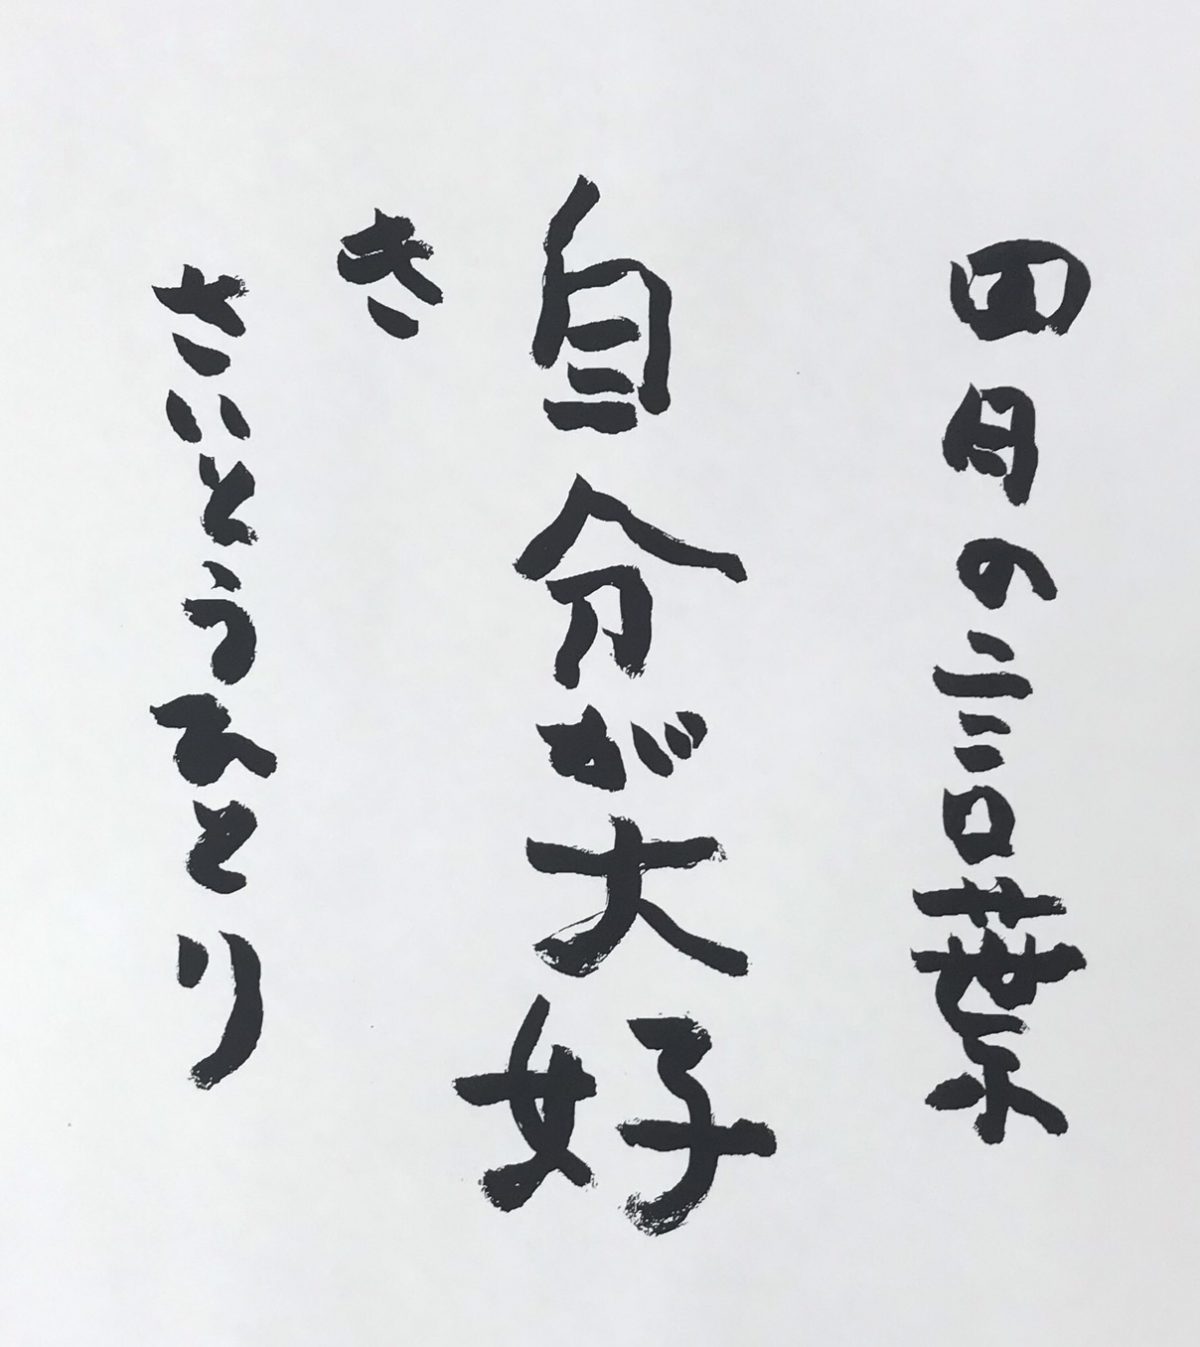 四月の言葉
自分が大好
き
さいとうひとり